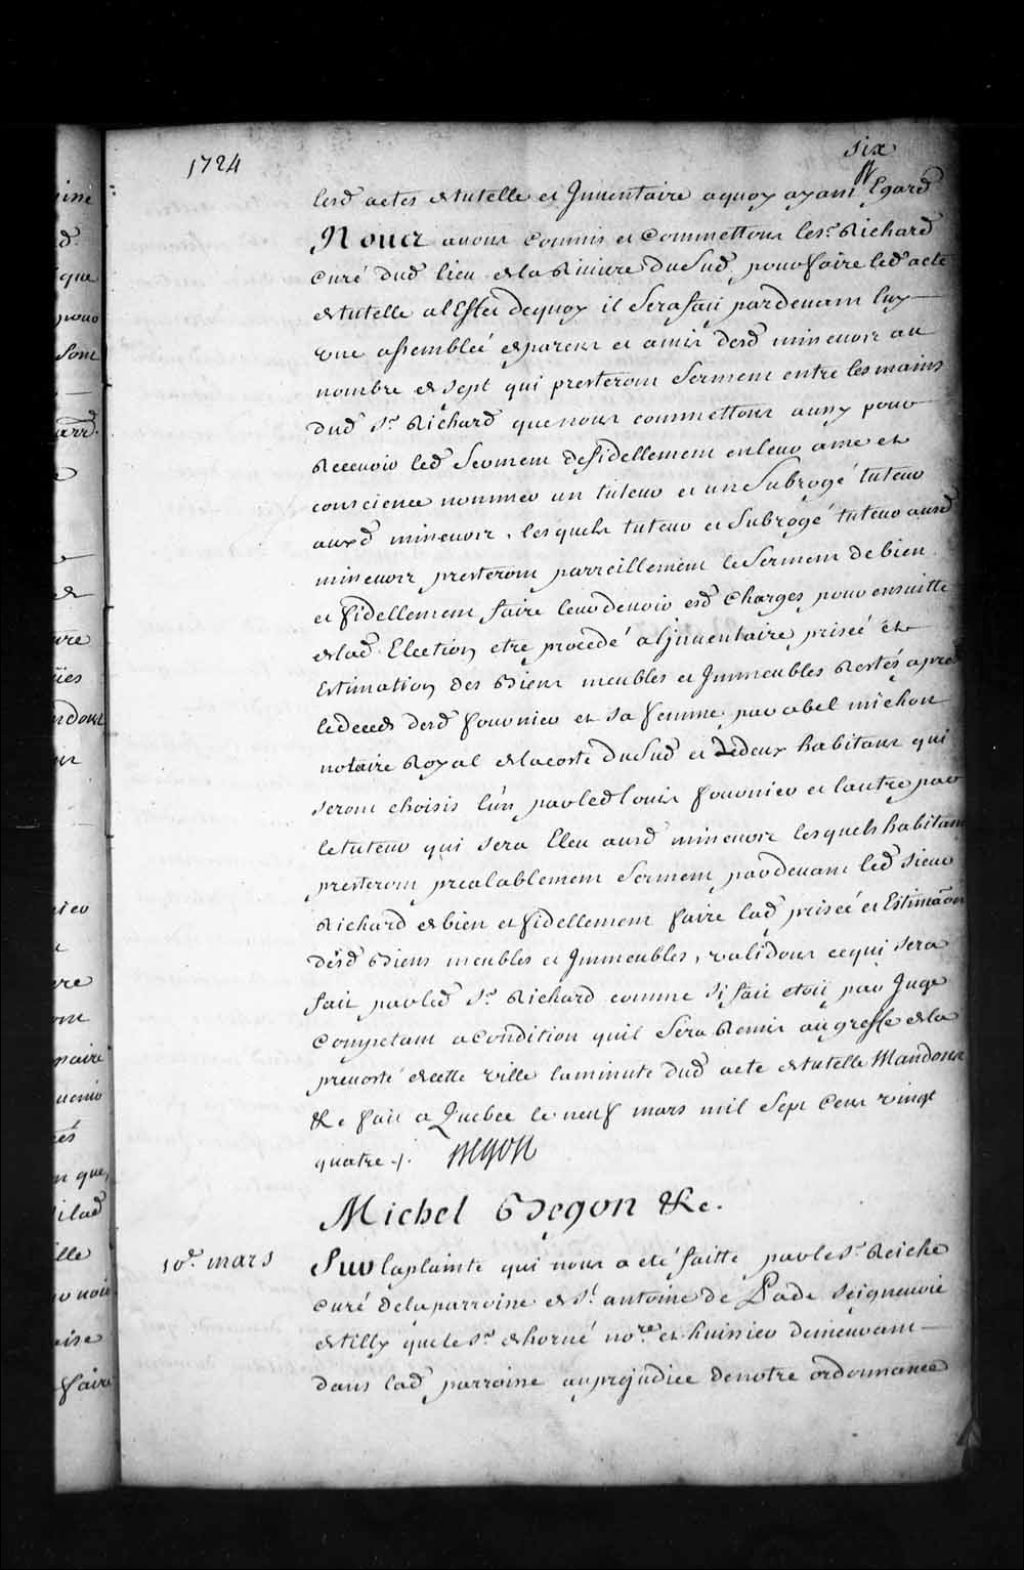 1724
six
lesd actes de tutelle et Inventaire aquoy ayant Egard
Nous avons Commis et Commettons le sr. Richard
Curé dud lieu de la Riviere du Sud, pour faire led acte
de tutelle a l'Effet dequoy il sera fait pardevant luy
une assemblée de parens et amis desd mineurs au
nombre de sept qui presteront serment entre les mains
dud sr. Richard que nous commettons aussy pour
Recevoir led serment de fidellement en leur ame et
conscience nommer un tuteur et un subrogé tuteur
auxd mineurs, lesquels tuteur et subrogé tuteur ausd
mineurs presteront pareillement le serment de bien
et fidellement faire leur devoir esd Charges pour ensuitte
de lad Election etre procedé a l'jnventaire, prisée et
Estimation des Biens meubles et Immeubles Restés apres
le deceds desd fournier et sa femme par abel michon
notaire Royal de la coste du Sud et de deux habitans qui
seront choisis l'un par led louis fournier et l'autre par
le tuteur qui sera Eleu ausd mineurs lesquels habitans
presteront prealablement serment pardevant led sieur
Richard de bien et fidellement faire lad prisée et Estimaon
desd Biens meubles et Immeubles, validons ce qui sera
fait par led sr. Richard comme si fait etoit par Juge
Competant a Condition quil sera Remis au greffe de la
prevosté de cette ville la minute dud acte de tutelle Mandons
&c fait a Quebec le neuf mars mil sept cens vingt
quatre ./. Begon
Michel Begon &c.
10e. mars
Sur la plainte qui nous a eté faitte par le sr. Reiche
Curé de la parroisse de st. antoine de Pade seigneurie
de tilly que le sr. de horné nore. et huissier demeurant
dans lad parroisse au prejudice de notre ordonnance